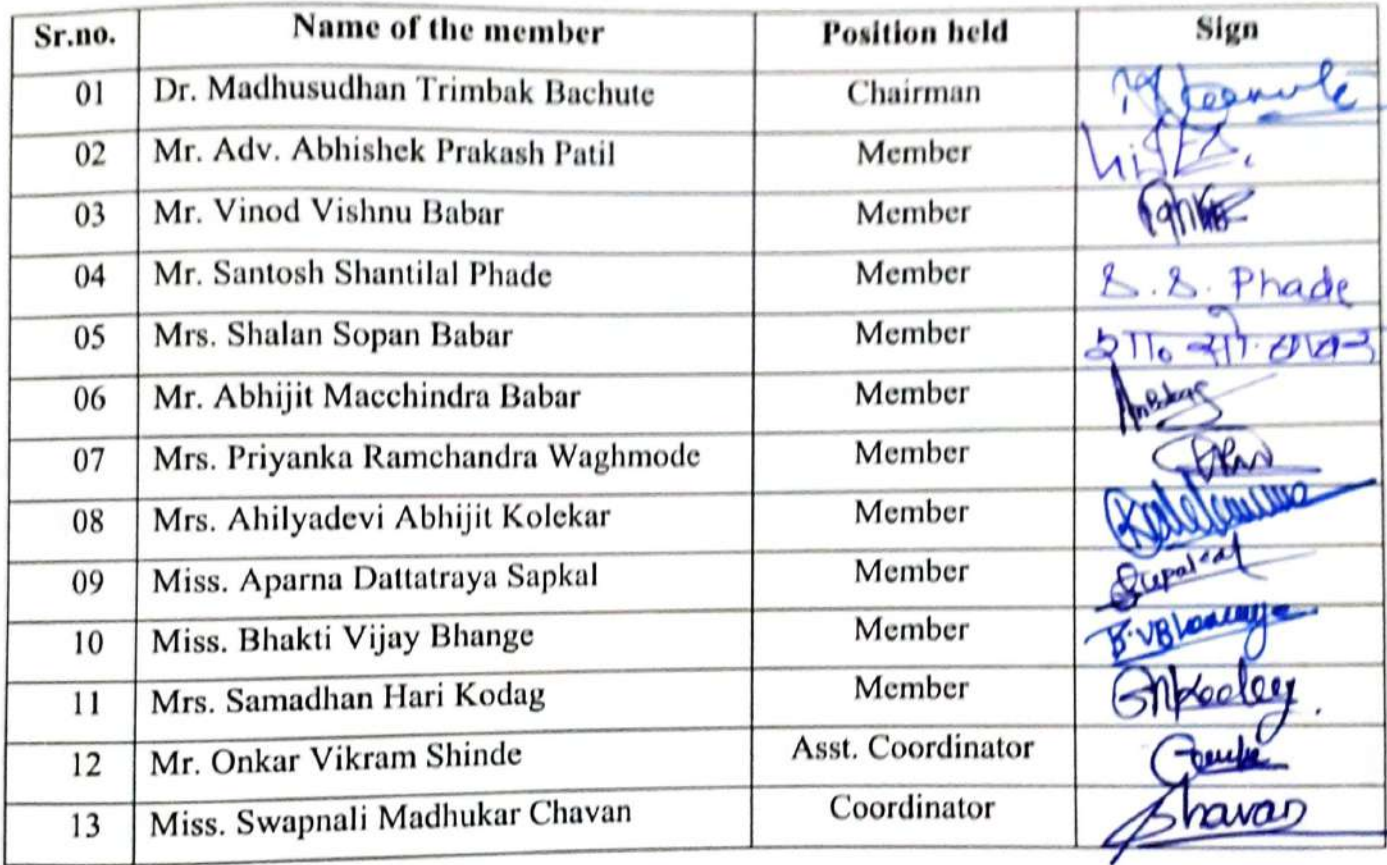 Sr.no. Name of the member Position held Sign
01 Dr. Madhusudhan Trimbak Bachute Chairman
02 Mr. Adv. Abhishek Prakash Patil Member
03 Mr. Vinod Vishnu Babar Member
04 Mr. Santosh Shantilal Phade Member S.S. Phade
05 Mrs. Shalan Sopan Babar Member शा. सो. बाबर
06 Mr. Abhijit Macchindra Babar Member
07 Mrs. Priyanka Ramchandra Waghmode Member
08 Mrs. Ahilyadevi Abhijit Kolekar Member
09 Miss. Aparna Dattatraya Sapkal Member
10 Miss. Bhakti Vijay Bhange Member B.VBhange
11 Mrs. Samadhan Hari Kodag Member
12 Mr. Onkar Vikram Shinde Asst. Coordinator
13 Miss. Swapnali Madhukar Chavan Coordinator